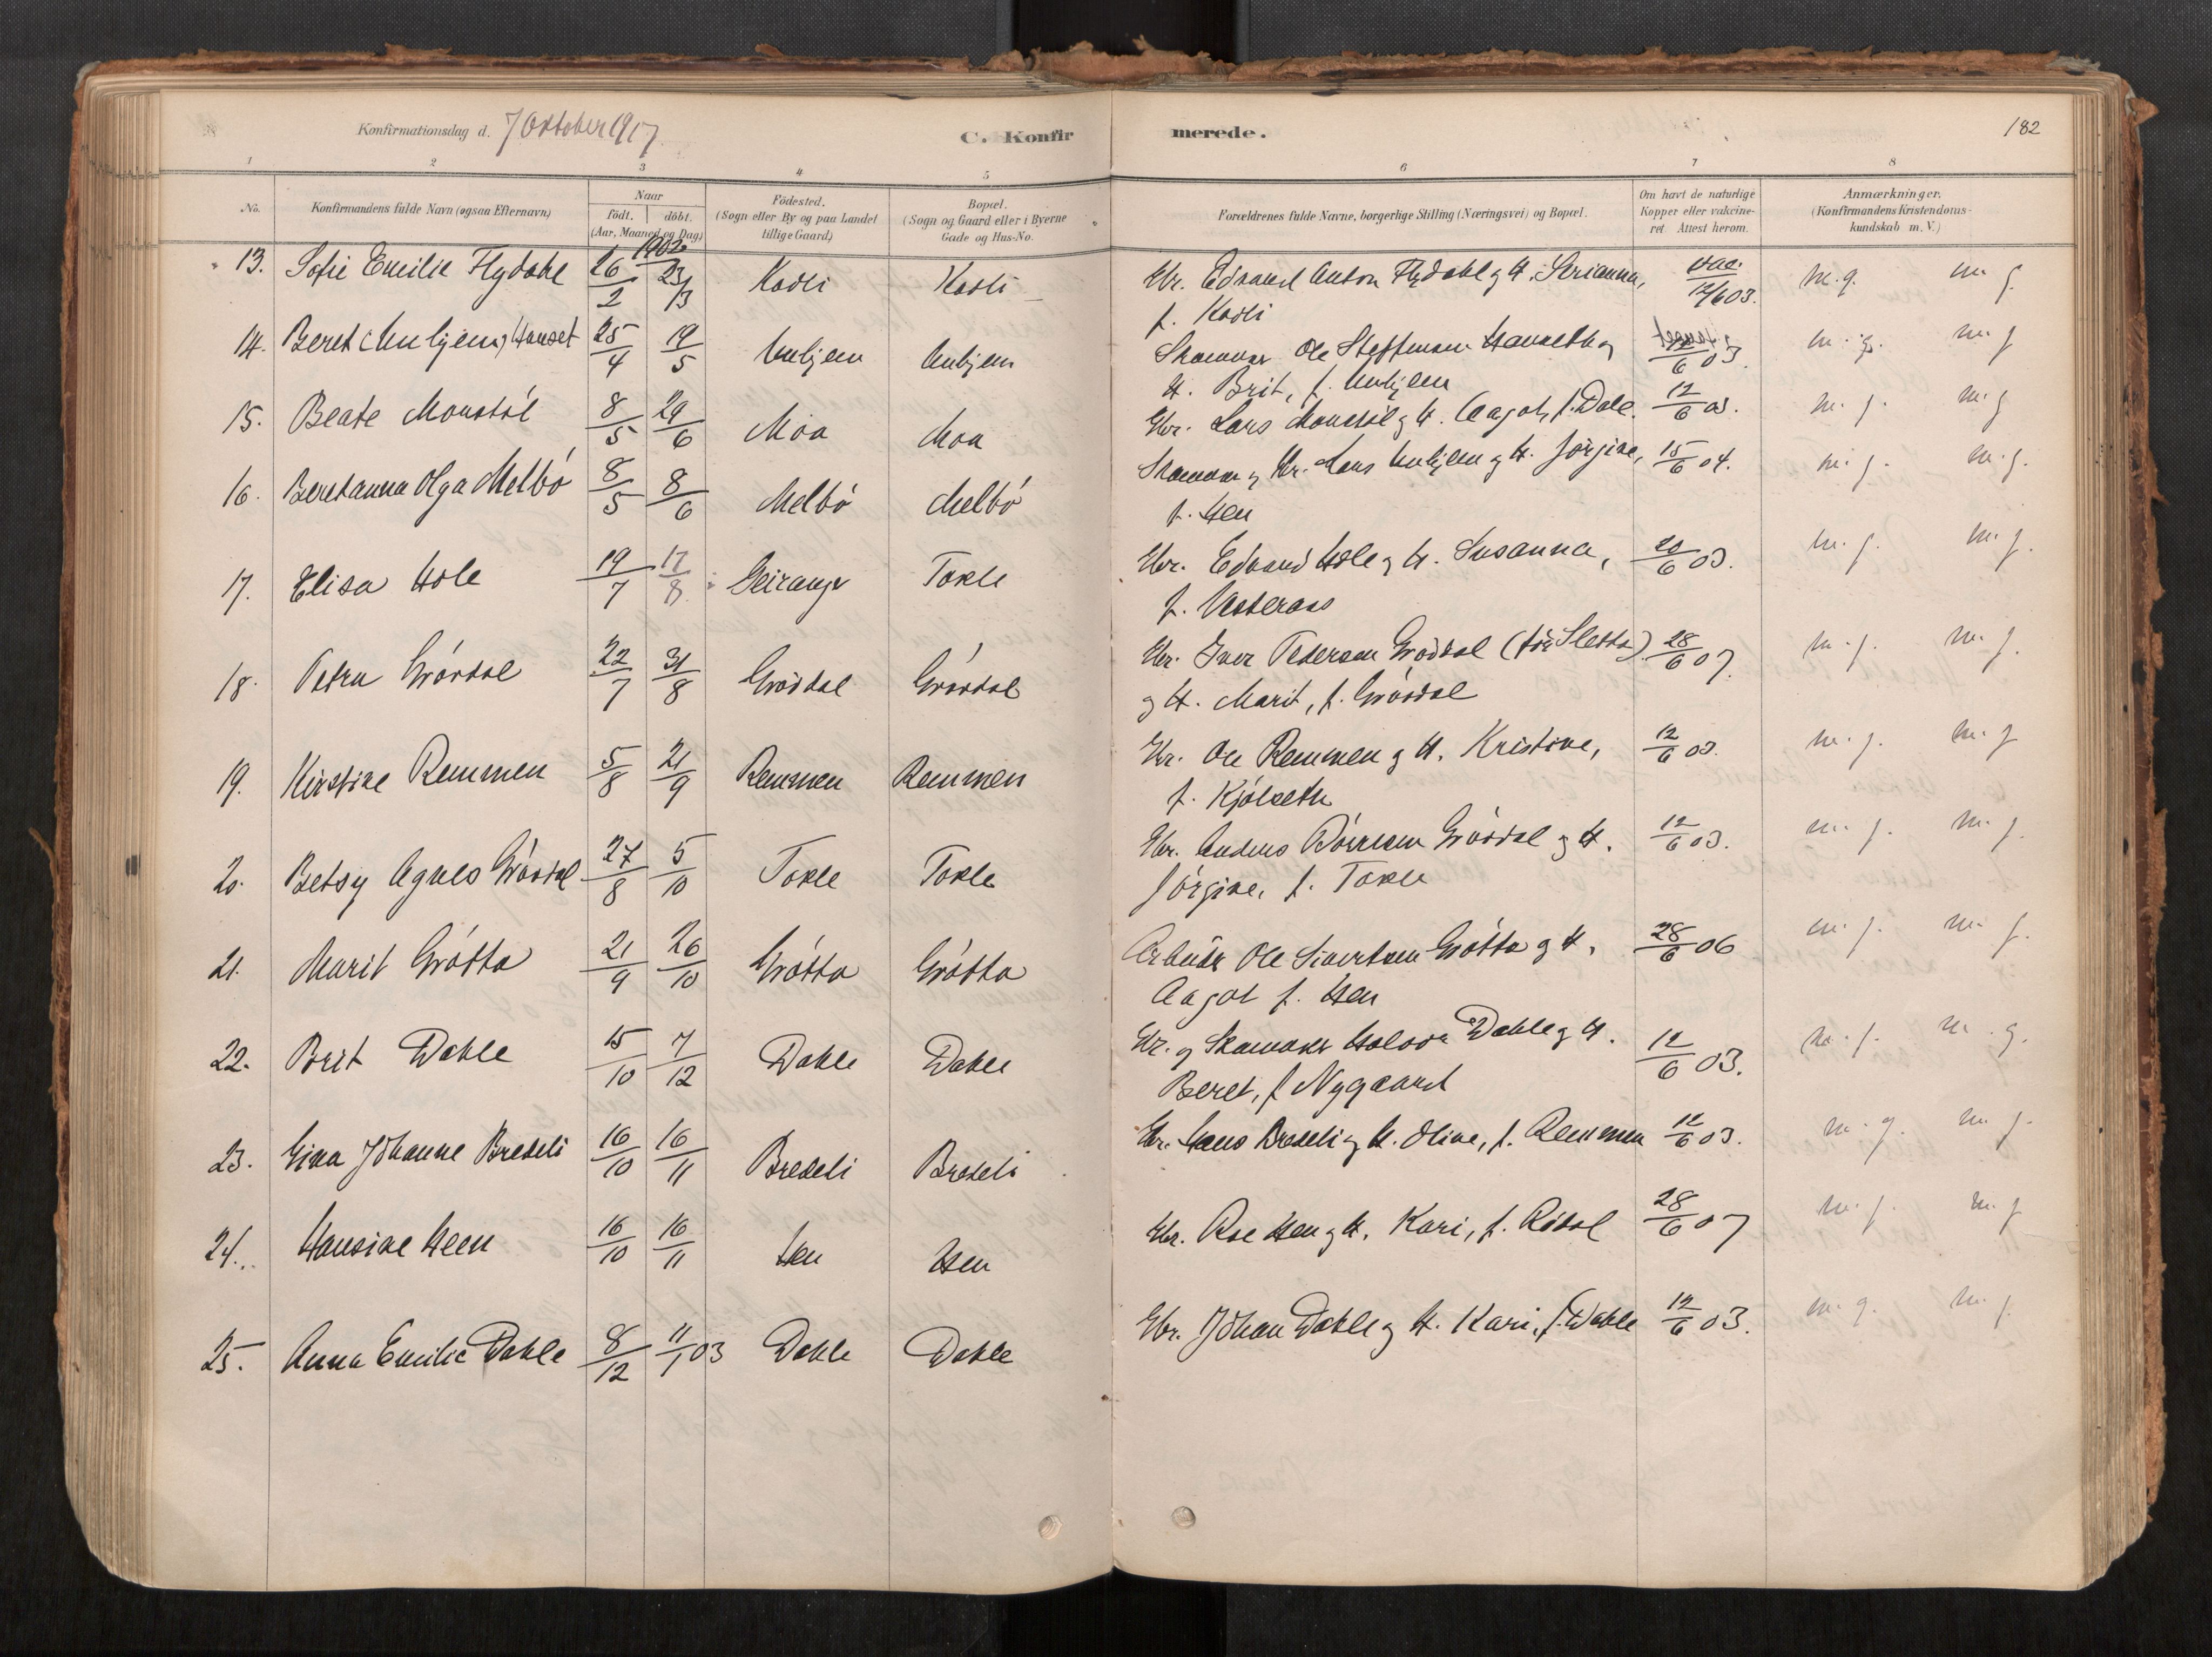 Konfirmationsdag d. 7 Oktober 1917.
C. Konfirmerede.
182
1 2 3 4 5 6 7 8
No.
Konfirmandens fulde Navn (ogsaa Efternavn)
Naar
födt. döbt.
(Aar, Maaned og Dag)
Födested.
(Sogn eller By og paa Landet
tillige Gaard)
Bopæl.
(Sogn og Gaard eller i Byerne
Gade og Hus-No.
Forældrenes fulde Navne, borgerlige Stilling (Næringsvei) og Bopæl.
Om havt de naturlige
Kopper eller vakcine-
ret Attest herom.
Anmærkninger.
(Konfirmandens Kristendoms-
kundskab m. V.)
1902
13. Sofie Emilie Flydahl 26/2 23/3 Kasli Kasli Gbr. Edvard Anton Flydahl g H. Serianna, vac. 12/6 03. m. g. m g.
f. Kasli
14. Beret (Unhjem) Hauset 25/4 19/5 Unhjem Unhjem Skomaker Ole Steffensen g 12/6 03. m. g. m. g
H. Brit, f. Unhjem
15. Beate Monstöl 8/5 29/6 Moa Moa Gbr. Lars Monstöl g H. Aagot, f. Dale. 12/6 03. m. g. m. g
16. Beretanna Olga Melbö 8/5 8/6 Melbö Melbö Skomaker g Gbr. Unhjem g H. Jörgine, 15/6 04. m. g. m. g.
f. Hen
17. Elisa Hole 19/7 17/8 Geiranger Tokle Gbr. Edvard Hole g H. Susanna, 20/6 03. m. g. m. g.
f. Vesteraas
18. Petra Grövdal 22/7 31/8 Grövdal Grövdal Gbr. Iver Pedersen Grövdal (för Sletta) 28/6 07. m. g. m. g.
g H. Marit, f. Grövdal
19. Kirstine Remmen 5/8 21/9 Remmen Remmen Gbr. Ole Remmen g H. Kristine, 12/6 03. m. g. m. g
f. Kjölseth
20. Betsy Agnes Grövdal 27/8 5/10 Tokle Tokle Gbr. Anders Grövdal g H. 12/6 03. m. g. m. g.
Jörgine, f. Tokle
21. Marit Grötta 21/9 26/10 Grötta Grötta Arbeider Ole Sivertsen Grötta g H. 28/6 06 m. g. m. g.
Aagot f. Hen
22. Brit Dahle 15/10 7/12 Dahle Dahle Gbr. g Skomaker Halvor Dahle g H. 12/6 03. m. g. m. g.
Beret, f Nygaard
23. Gina Johanne Bredeli 16/10 16/11 Bredeli Bredeli Gbr. Hans Bredeli g H. Oline, f. Remmen 12/6 03. m. g. m. g.
24. Hansine Heen 16/10 16/11 Hen Hen Gbr. Roe Hen g H. Kari, f. Rödal 28/6 07 m. g. m. g
25. Anna Emilie Dahle 8/12 11/1 03 Dahle Dahle Gbr. Johan Dahle g H. Kari, f. Dahle 12/6 03. m. g. m. g.